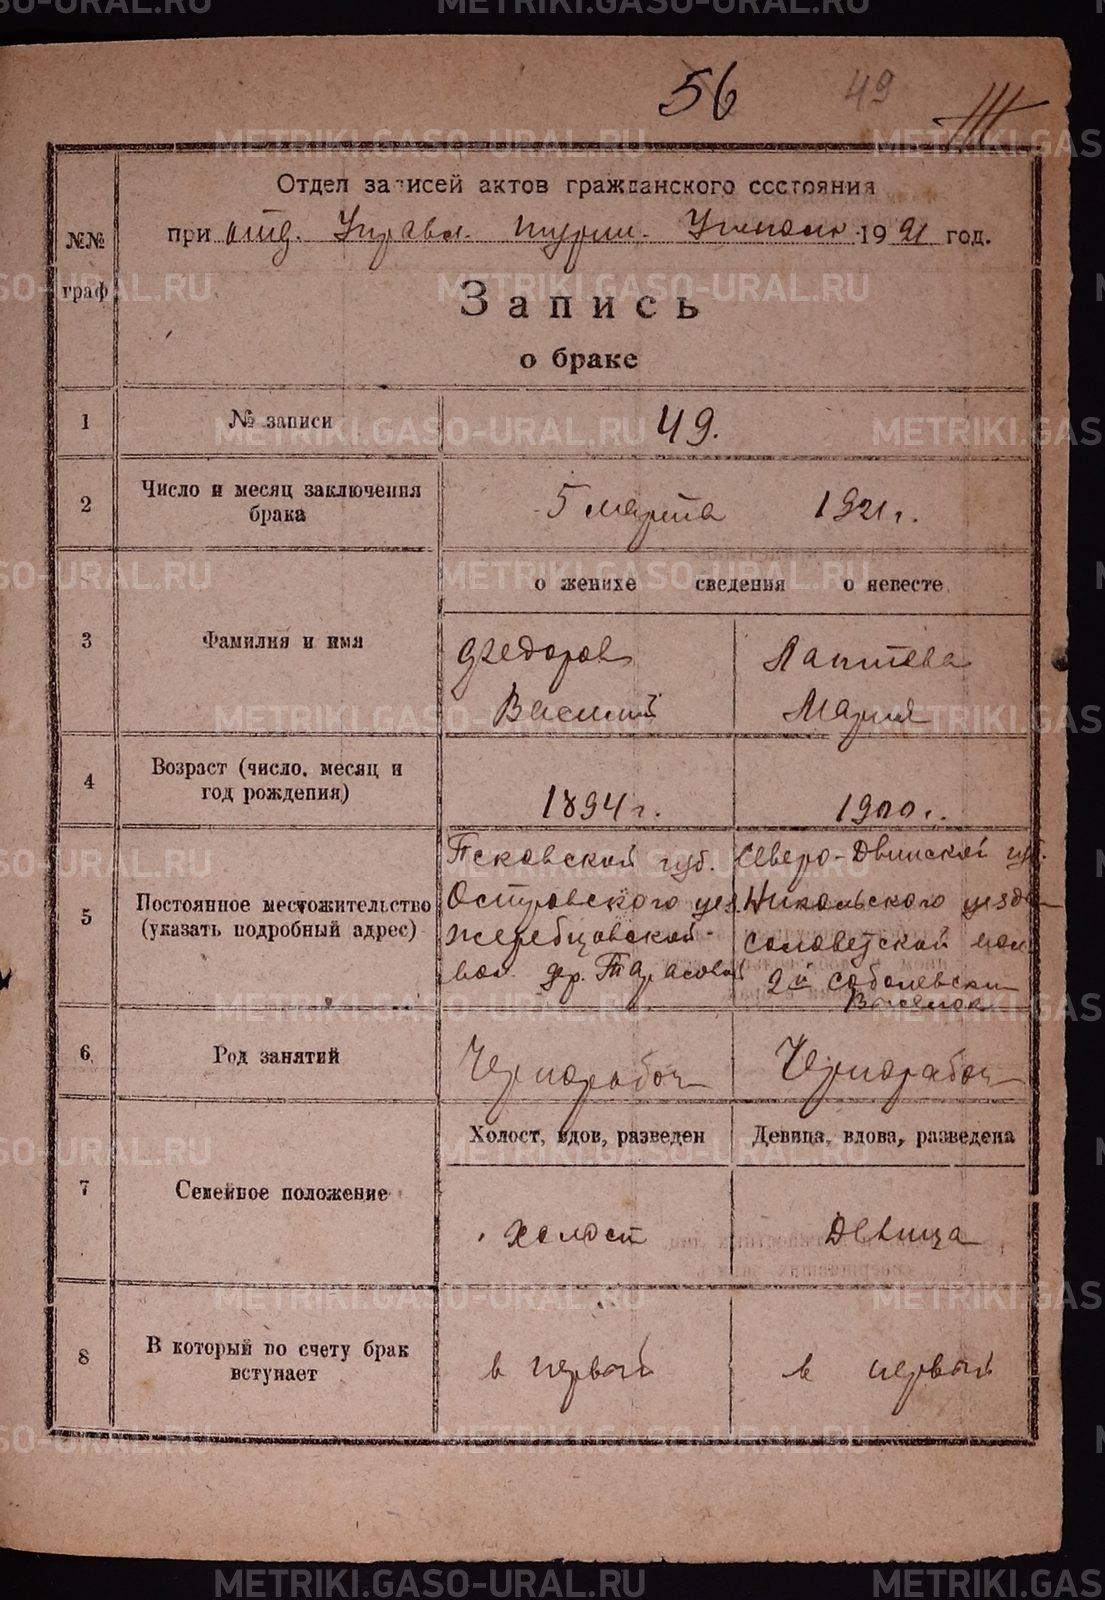 METRIKI.GASO-URAL.RU
56
49
Отдел записей актов гражданского состояния
при отд. Управл. Турин. Уисполк 1921 год.
№№
граф
Запись
о браке
1
№ записи
49.
2
Число и месяц заключения
брака
5 марта 1921 г.
о женихе сведения о невесте
3
Фамилия и имя
Федоров
Василий
Лаптева
Мария
4
Возраст (число, месяц и
год рождения)
1894 г.
1900 г.
5
Постоянное местожительство
(указать подробный адрес)
Псковской губ.
Островского уез.
Жеребцовской
вол. дер. Тарасовой
Северо-Двинской губ.
Никольского уезда
Соловецкой вол.
2й Соболевский
Выселок
6
Род занятий
Чернорабоч
Чернорабоч
7
Семейное положение
Холост, вдов, разведен
Девица, вдова, разведена
холост
девица
8
В который по счету брак
вступает
в первый
в первый